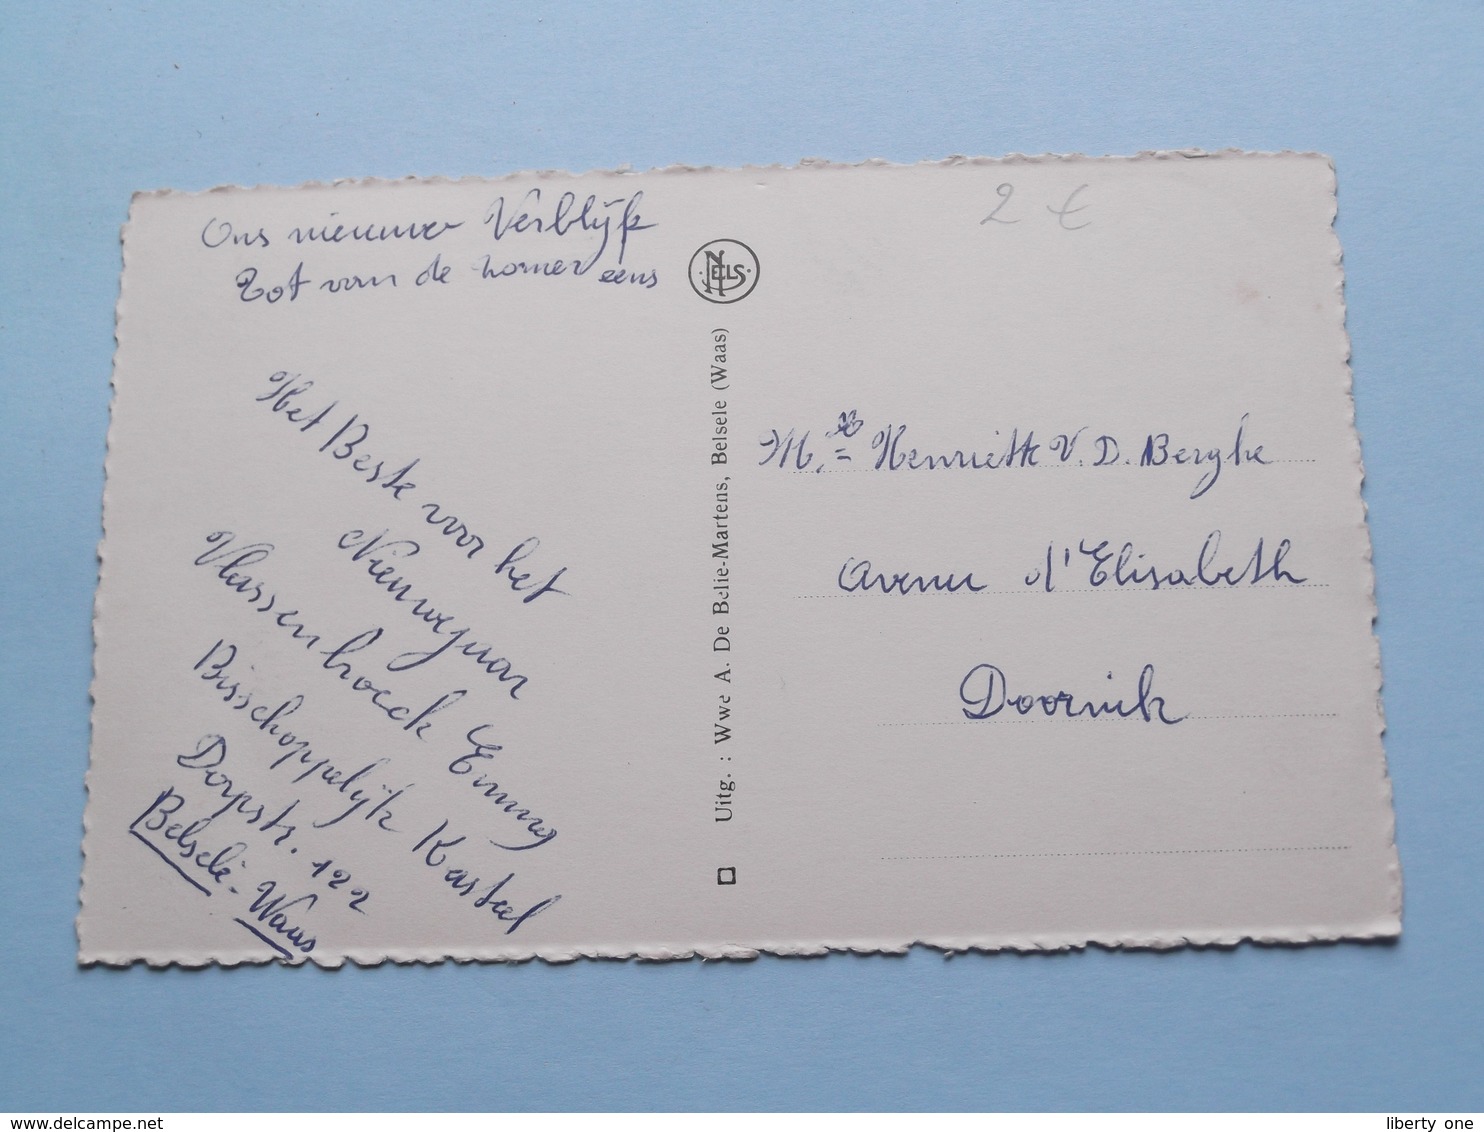 Ons nieuwe Verblijf
Tot van de zomer eens
Het Beste voor het
Nieuwejaar
Vlassenhoeck Emmy
Bisschoppelijk Kasteel
Dorpstr. 122
Belsele-Waas
NELS
Uitg. : Wwe A. De Belie-Martens, Belsele (Waas)
2 €
Henriette V. D. Berghe
Avenue d'Elisabeth
Doornik
www.delcampe.net
liberty_one